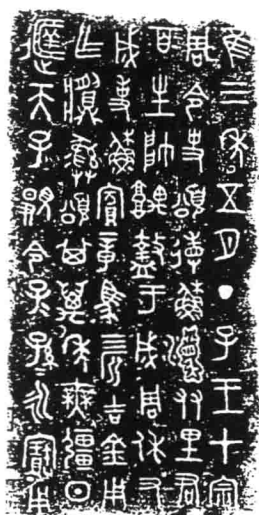 隹三年五月丁子王才宗
周令史頌省穌姻友里君
百生帥堣盩于成周休又
成事穌賓章馬四匹吉金用
乍彝頌其萬年無彊日
天子令子=孫=永寶用